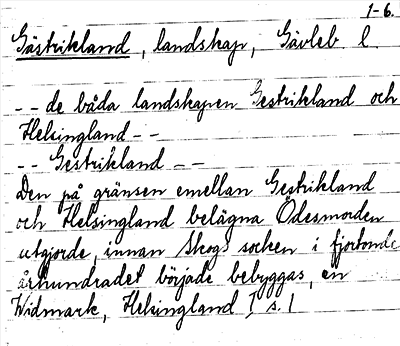 1-6.
Gästrikland, landskap, Gävleb. l.
-- de båda landskapen Gestrikland och
Helsingland --
-- Gestrikland --
Den på gränsen emellan Gestrikland
och Helsingland belägna Ödesmorden
utgjorde, innan Skogs socken i fjortonde
århundradet började bebyggas, en
Widmark, Helsingland I s. 1